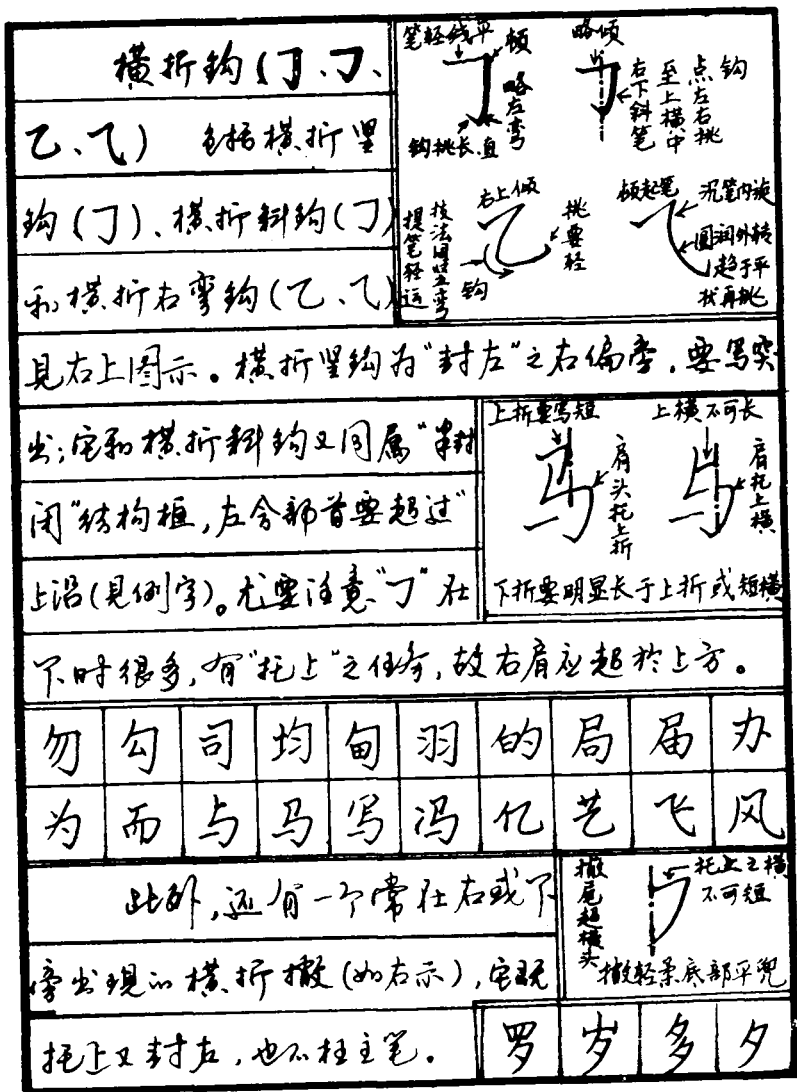 横折钩(㇆、㇆、
乙、⺄) 包括横折竖
钩(㇆)、横折斜钩(㇆)
和横折右弯钩(乙、⺄)
笔轻线平
顿
略左弯
钩挑长、直
略倾
右下斜笔
至上横中
点左右挑
钩
右上倾
技法同竖右弯
提笔轻运
钩
挑要轻
顿起笔
沉笔内旋
圆润外转
趋于平
状再挑
见右上图示。横折竖钩为“封左”之右偏旁,要写突
出;它和横折斜钩又同属“半封
闭”结构框,左含部首要超过
上沿(见例字)。尤要注意“㇆”在
下时很多,有“托上”之任务,故右肩应超于上方。
上折要写短
肩头托上折
上横不可长
肩托上横
下折要明显长于上折或短横
勿 勾 司 均 甸 羽 的 局 届 办
为 而 与 马 写 冯 亿 艺 飞 风
此外,还有一个常在右或下
旁出现的横折撇(如右示),它既
托上又封右,也不枉主笔。
撇尾超横头
托上之横
不可短
撇轻柔底部平兜
罗 岁 多 夕